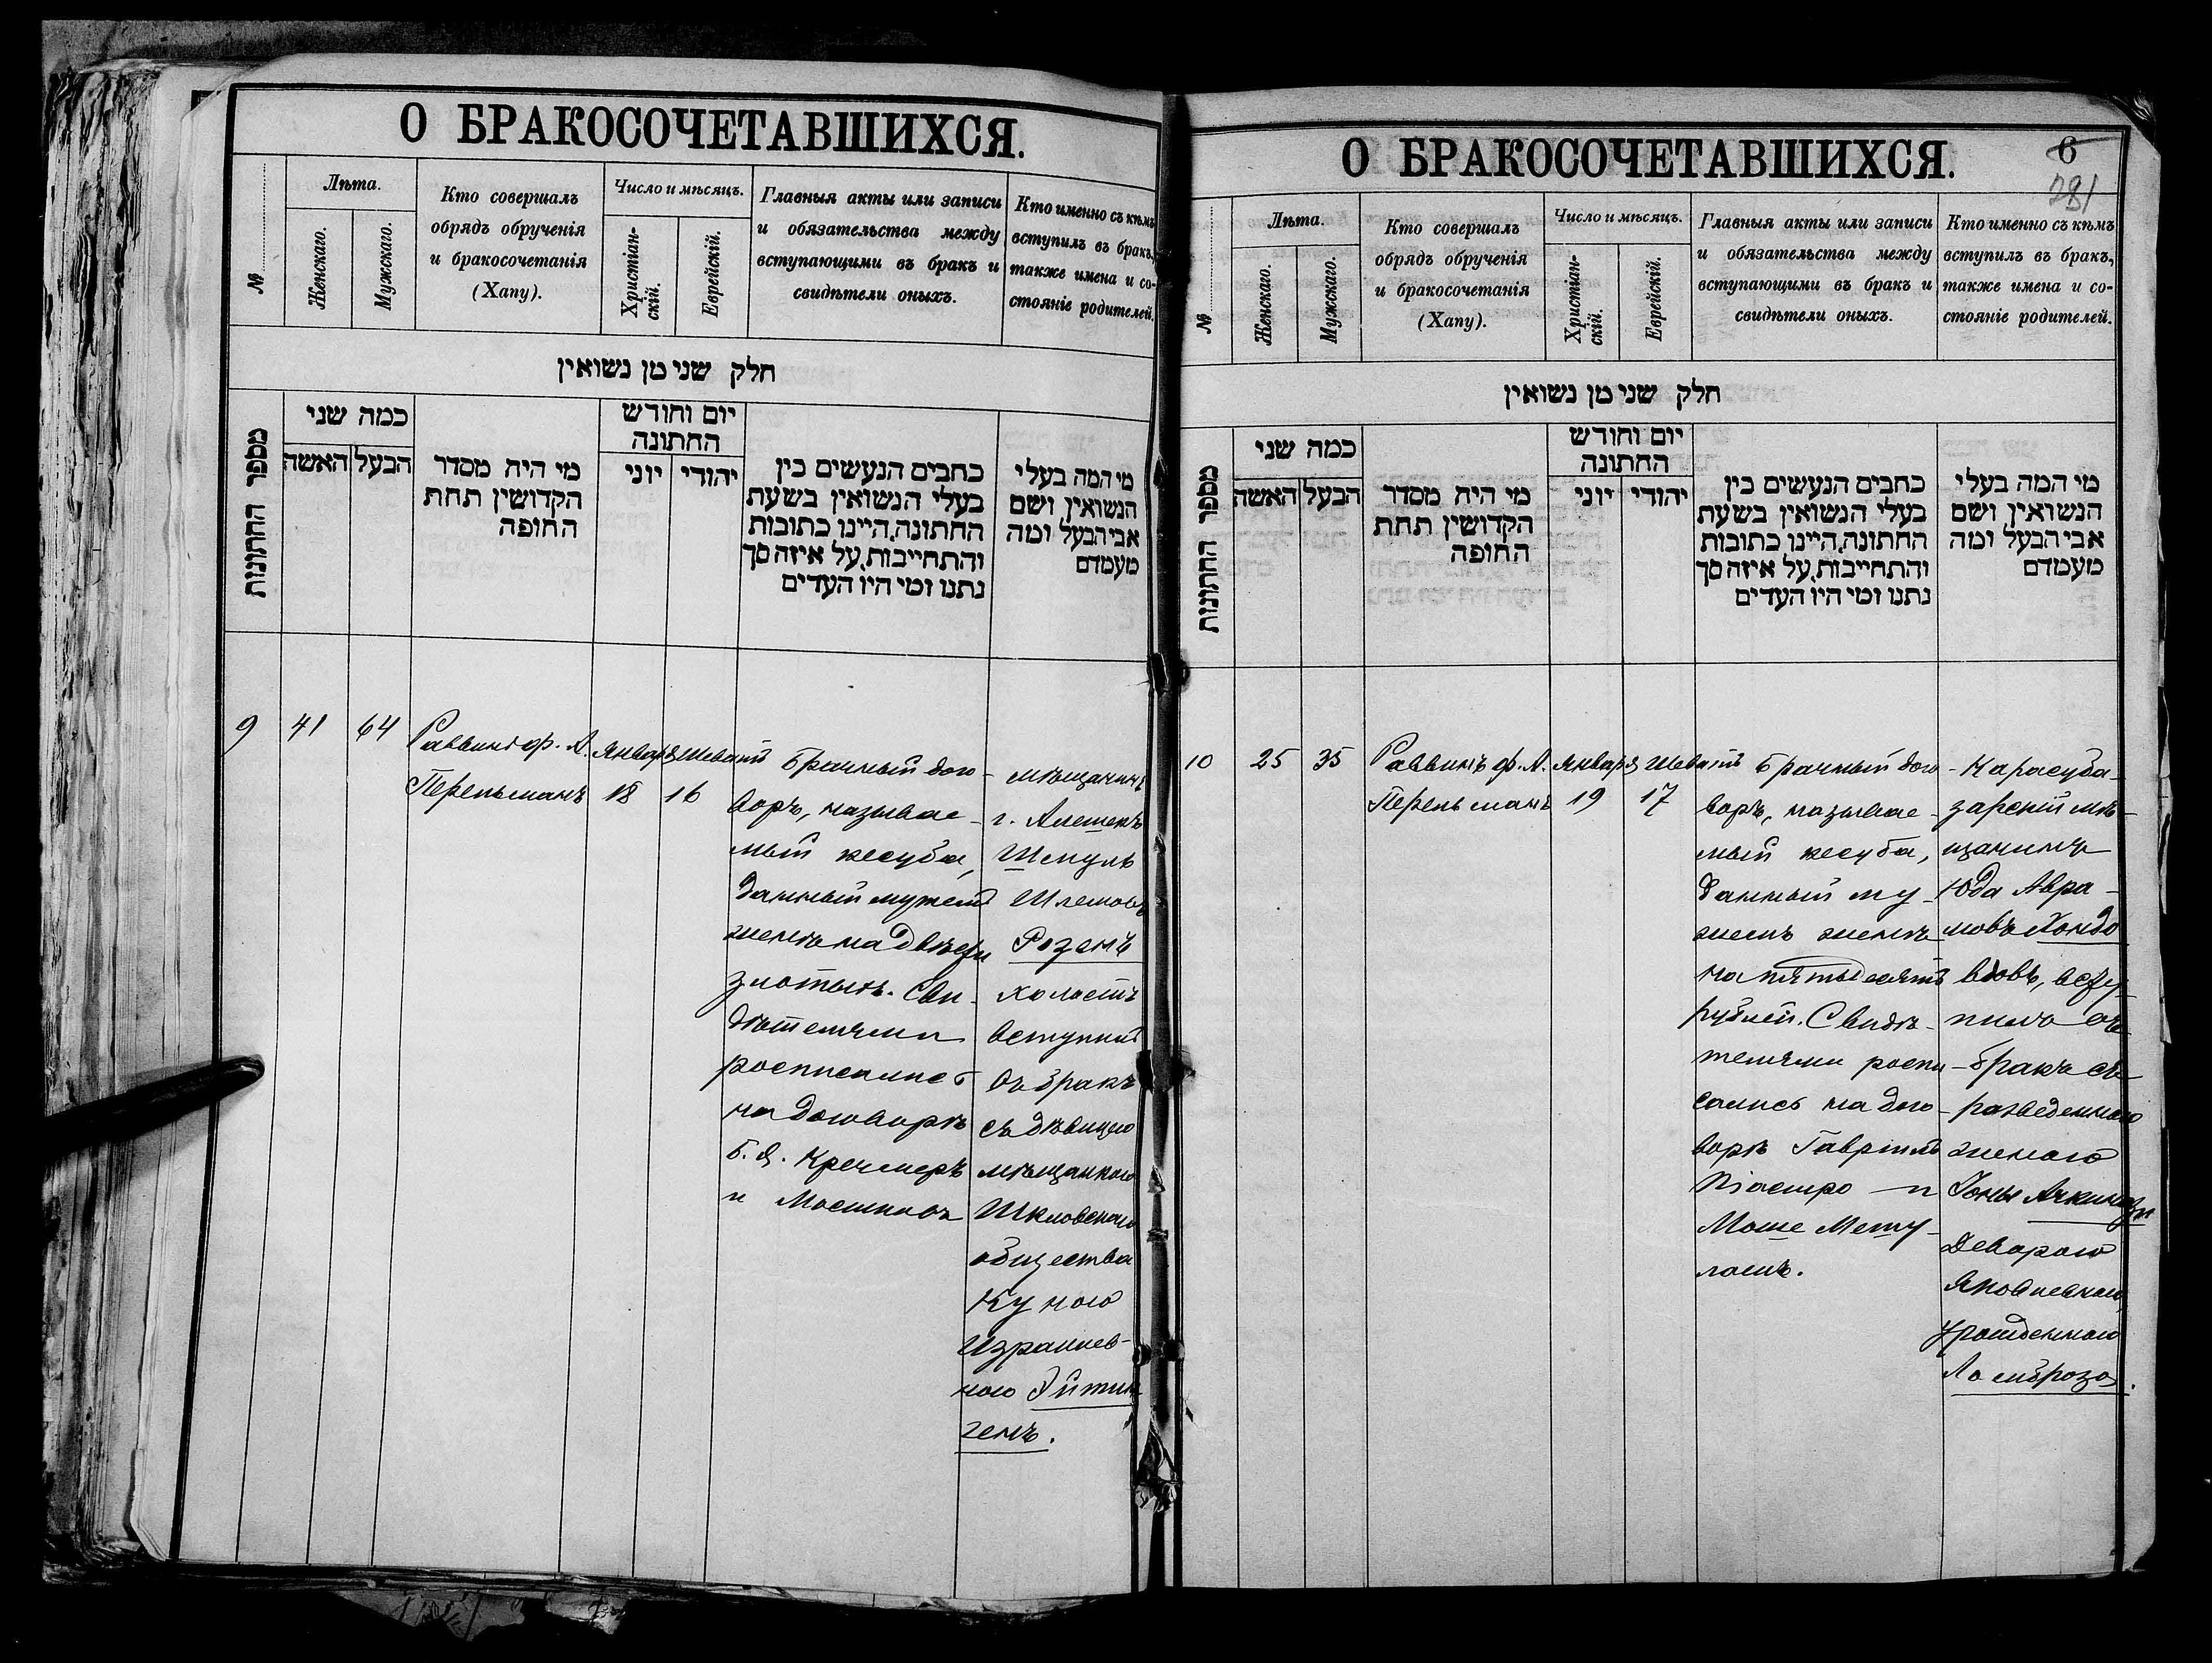 О БРАКОСОЧЕТАВШИХСЯ.
№
Лѣта.
Женскаго.
Мужскаго.
Кто совершалъ
обрядъ обрученія
и бракосочетанія
(Хапу).
Число и мѣсяцъ.
Христіан-
скій.
Еврейскій.
Главныя акты или записи
и обязательства между
вступающими въ бракъ и
свидѣтели оныхъ.
Кто именно съ кѣмъ
вступилъ въ бракъ,
также имена и со-
стояніе родителей.
חלק שני מן נשואין
מספר החתונות
כמה שני
האשה
הבעל
מי היה מסדר
הקדושין תחת
החופה
יום וחודש
החתונה
יוני
יהודי
כתבים הנעשים בין
בעלי הנשואין בשעת
החתונה, היינו כתובות
והתחייבות, על איזה סך
נתנו ומי היו העדים
מי המה בעלי
הנשואין ושם
אבי הבעל ומה
מעמדם
9
41
64
Раввинъ ф. А.
Перельманъ
Января
18
Шеватъ
16
Брачный дого-
воръ, называе-
мый кесуба,
данный мужемъ
женѣ на двѣсти
злотыхъ. Сви-
дѣтелями
росписались
на договорѣ
Б. Я. Кречмеръ
и
мѣщанинъ
г. Алешекъ
Шмуль
Шлемовъ
Розенъ
холостъ
вступилъ
въ бракъ
съ дѣвицею
мѣщанкою
Шкловскаго
общества
Куною
Израилев-
ною Эйтин
генъ.
О БРАКОСОЧЕТАВШИХСЯ.
6
281
№
Лѣта.
Женскаго.
Мужскаго.
Кто совершалъ
обрядъ обрученія
и бракосочетанія
(Хапу).
Число и мѣсяцъ.
Христіан-
скій.
Еврейскій.
Главныя акты или записи
и обязательства между
вступающими въ бракъ и
свидѣтели оныхъ.
Кто именно съ кѣмъ
вступилъ въ бракъ,
также имена и со-
стояніе родителей.
חלק שני מן נשואין
מספר החתונות
כמה שני
האשה
הבעל
מי היה מסדר
הקדושין תחת
החופה
יום וחודש
החתונה
יוני
יהודי
כתבים הנעשים בין
בעלי הנשואין בשעת
החתונה, היינו כתובות
והתחייבות, על איזה סך
נתנו ומי היו העדים
מי המה בעלי
הנשואין ושם
אבי הבעל ומה
מעמדם
10
25
35
Раввинъ ф. А.
Перельманъ
Января
19
Шеватъ
17
Брачный дого-
воръ, называе-
мый кесуба,
данный му-
жемъ женѣ
на пятьдесятъ
рублей. Свидѣ-
телями роспи-
сались на дого-
ворѣ Гавріилъ
Піастро и
Моше Мешу-
ламъ.
Карасуба-
зарскій мѣ-
щанинъ
Юда Авра-
мовъ Хондо
вдовъ, всту-
пилъ въ
бракъ съ
разведенною
женою
Іоны Ачкинази
Деворою
Яковлевною,
урожденною
Ломброзо.